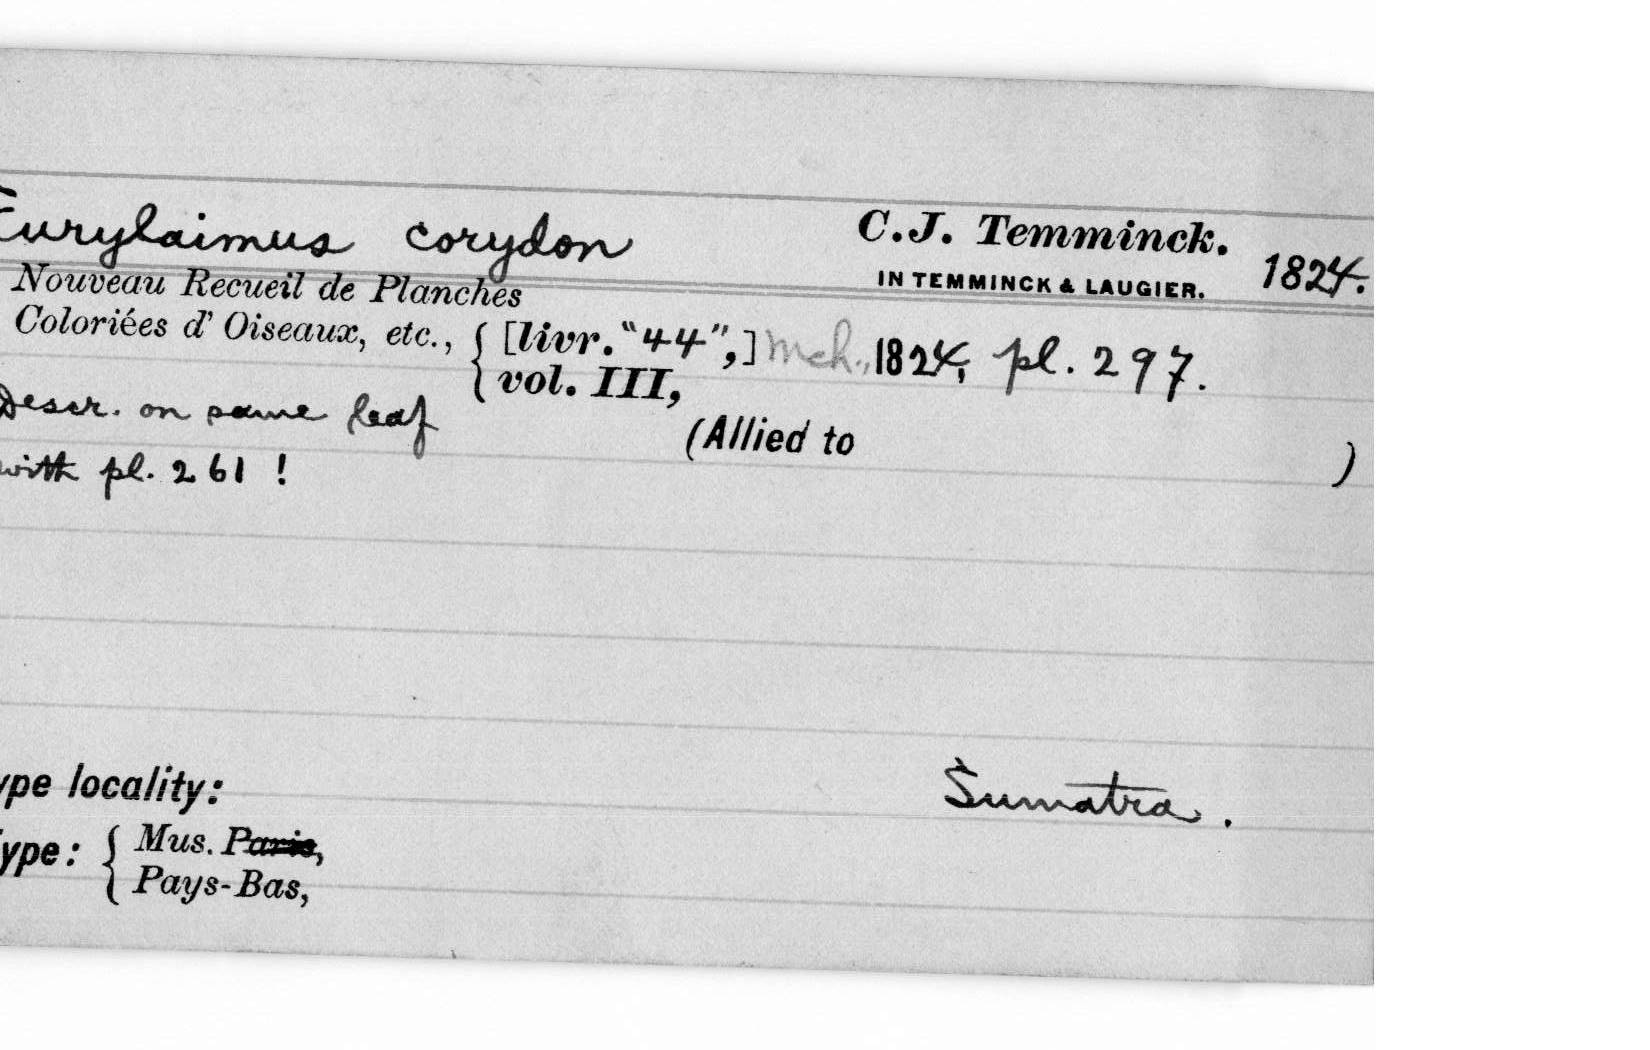 Eurylaimus corydon C.J. Temminck.
IN TEMMINCK & LAUGIER. 1824.
Nouveau Recueil de Planches
Coloriées d' Oiseaux, etc., { [livr. "44",] Mch., 1824, pl. 297.
vol. III,
Descr. on same leaf
(Allied to )
with pl. 261 !
ype locality: Sumatra.
ype: { Mus. Paris,
Pays-Bas,